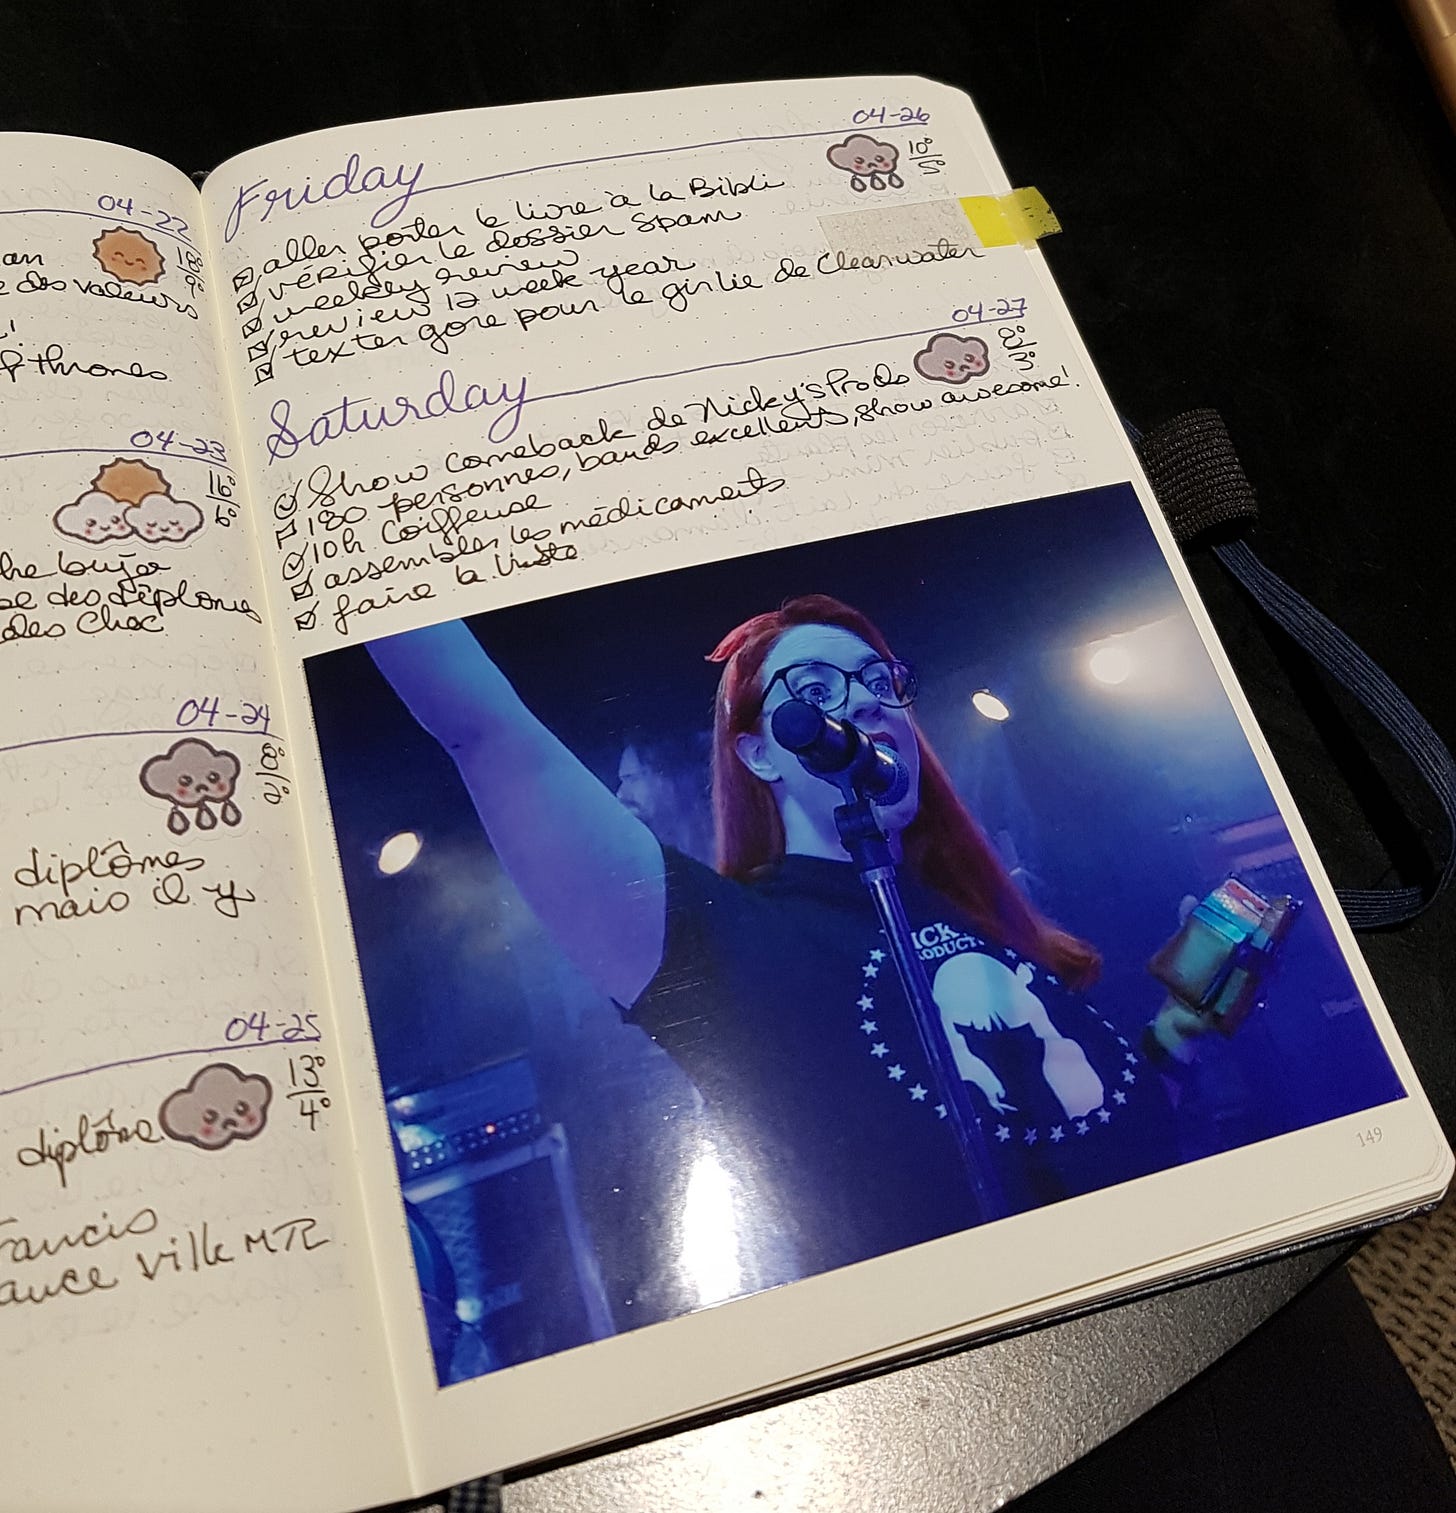 04-22
18° 9°
an
e des valeurs
!
of thrones
04-23
15° 6°
he bujo
se des diplômes
des Choc
04-24
8°
diplômes
mais il y
04-25
13° 4°
diplôme
rancis
ance ville MTL
Friday
04-26
10° 5°
aller porter le livre à la Bibli
vérifier le dossier Spam
weekly review
review 12 week year
texter gore pour le girlie de Clearwater
Saturday
04-27
8° 3°
Show comeback de Nicky's Prods
180 personnes, bands excellents, show awesome!
10h Coiffeuse
assembler les médicaments
faire la
ICK
RODUCT
149